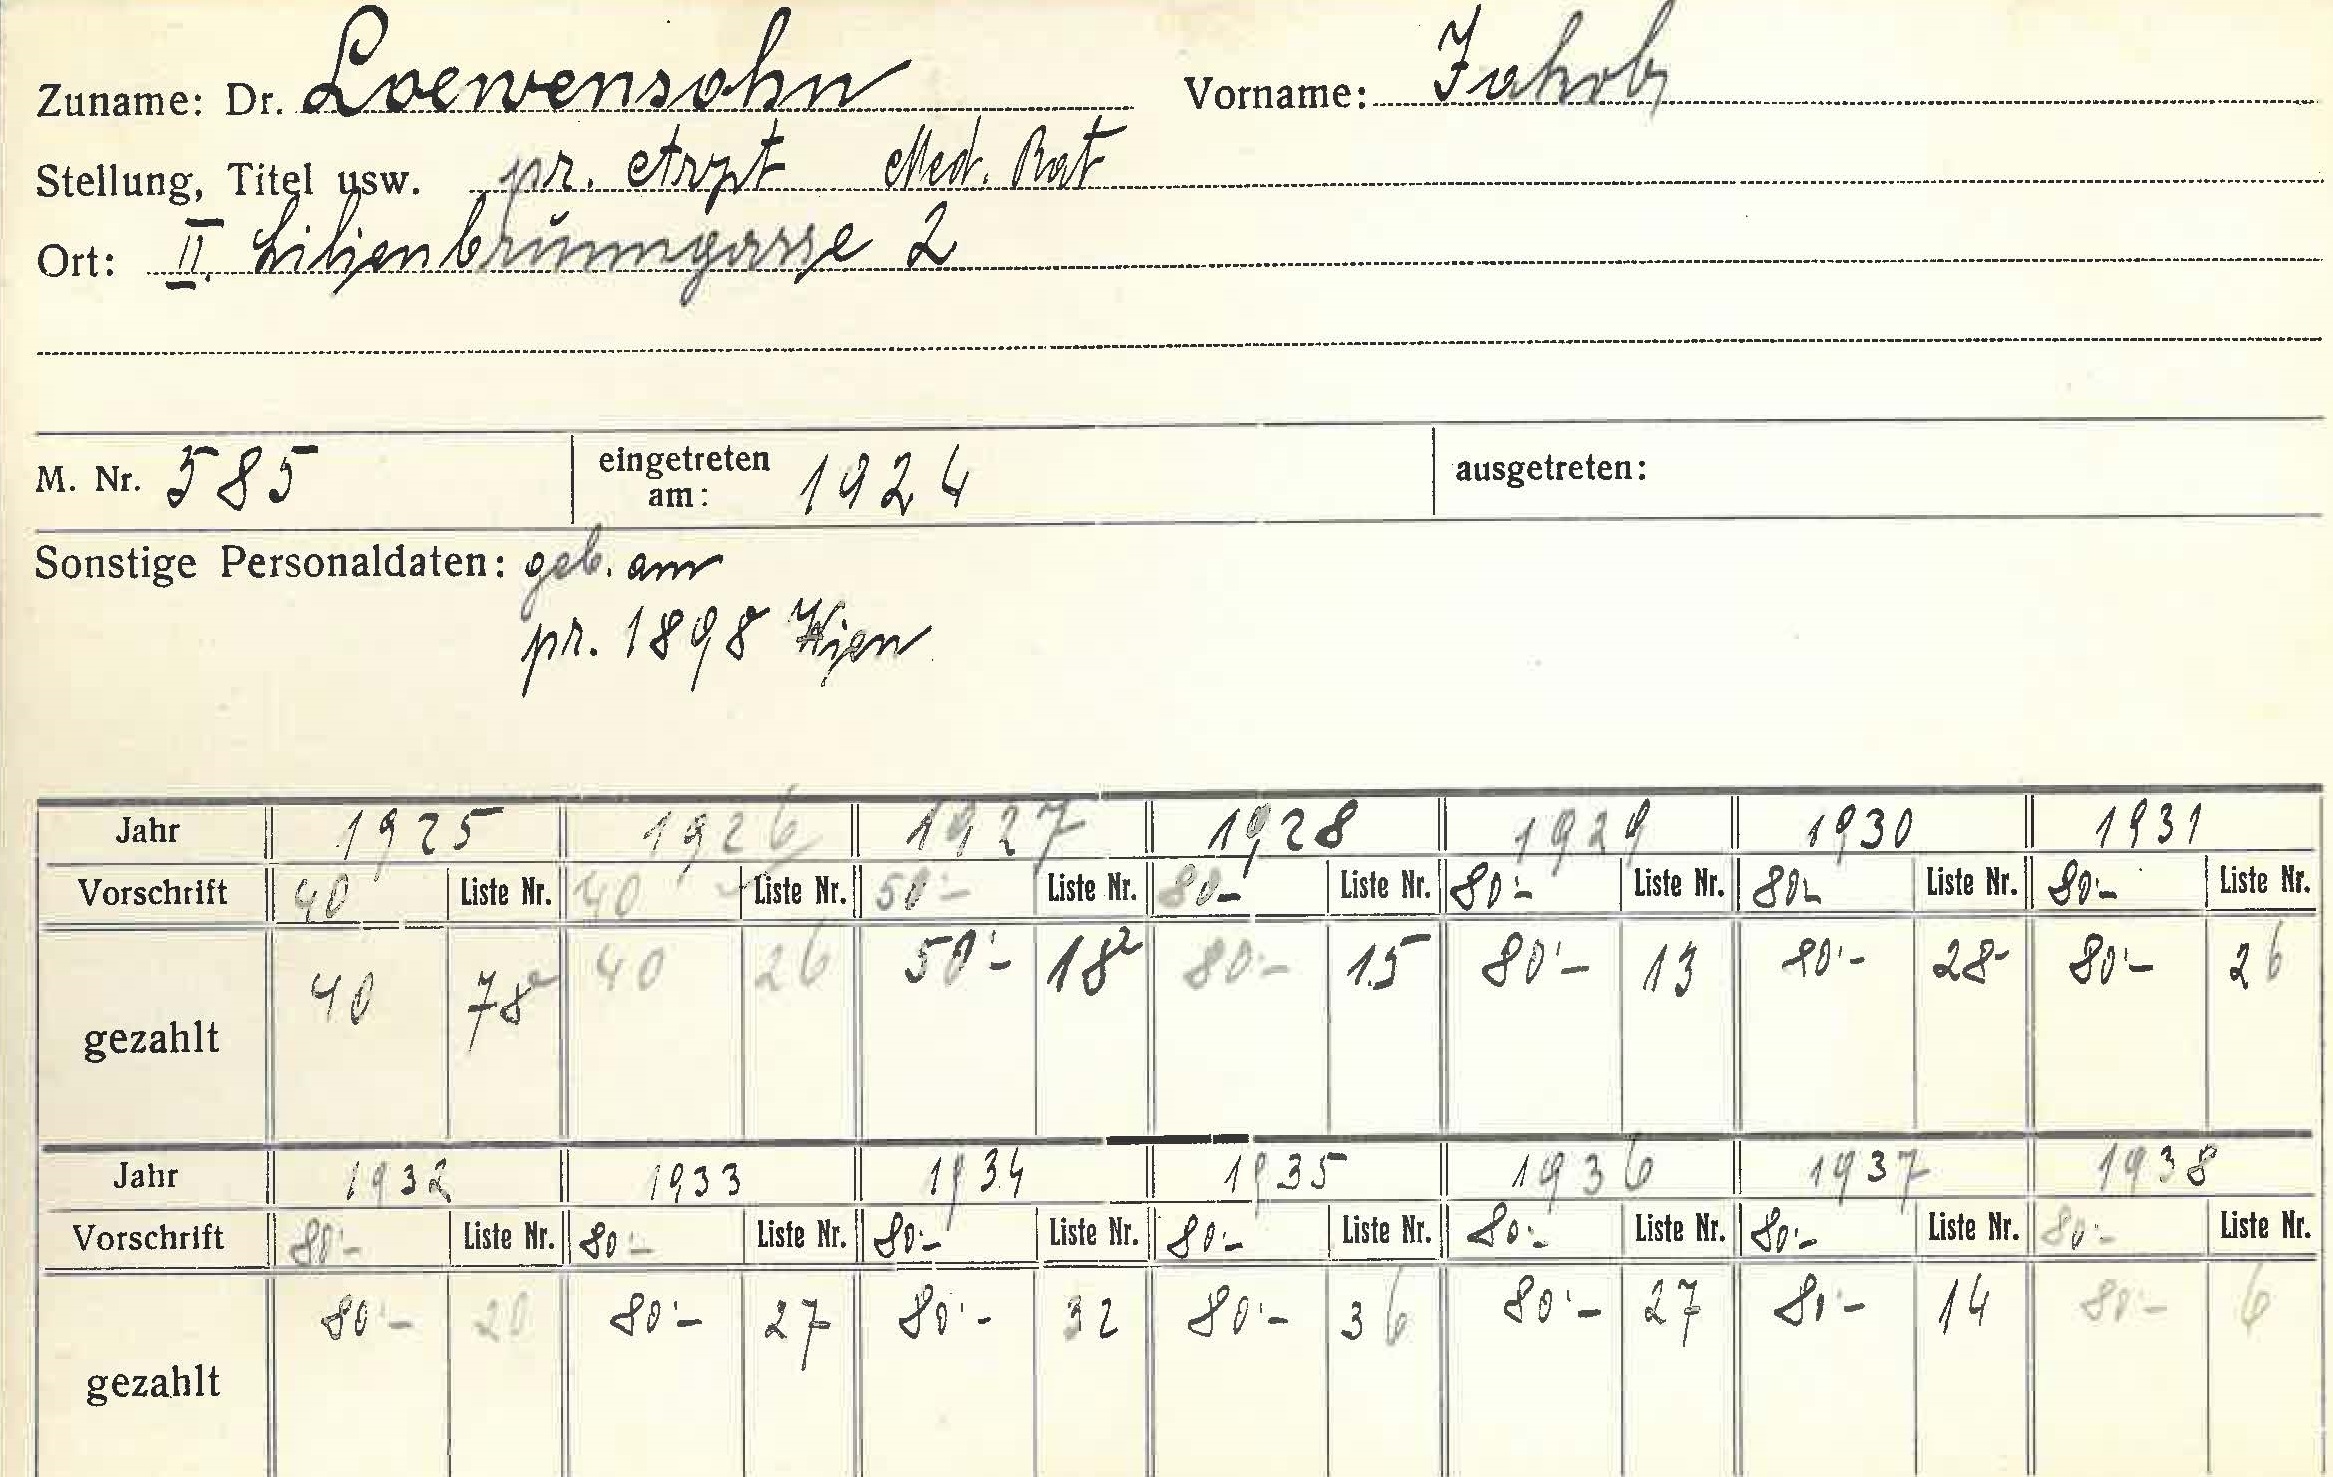 Zuname: Dr. Loewensohn Vorname: Jakob
Stellung, Titel usw. pr. Arzt Med. Rat
Ort: II. Lilienbrunngasse 2
M. Nr. 585 eingetreten am: 1924 ausgetreten:
Sonstige Personaldaten: geb. am
pr. 1898 Wien
Jahr 1925 1926 1927 1928 1929 1930 1931
Vorschrift 40 Liste Nr. 40 Liste Nr. 50·- Liste Nr. 80- Liste Nr. 80·- Liste Nr. 80- Liste Nr. 80·- Liste Nr.
gezahlt 40 78a 40 26 50·- 18a 80·- 15 80·- 13 80·- 28 80·- 26
Jahr 1932 1933 1934 1935 1936 1937 1938
Vorschrift 80·- Liste Nr. 80·- Liste Nr. 80·- Liste Nr. 80·- Liste Nr. 80·- Liste Nr. 80·- Liste Nr. 80·- Liste Nr.
gezahlt 80·- 20 80·- 27 80·- 32 80·- 36 80·- 27 80·- 14 80·- 6